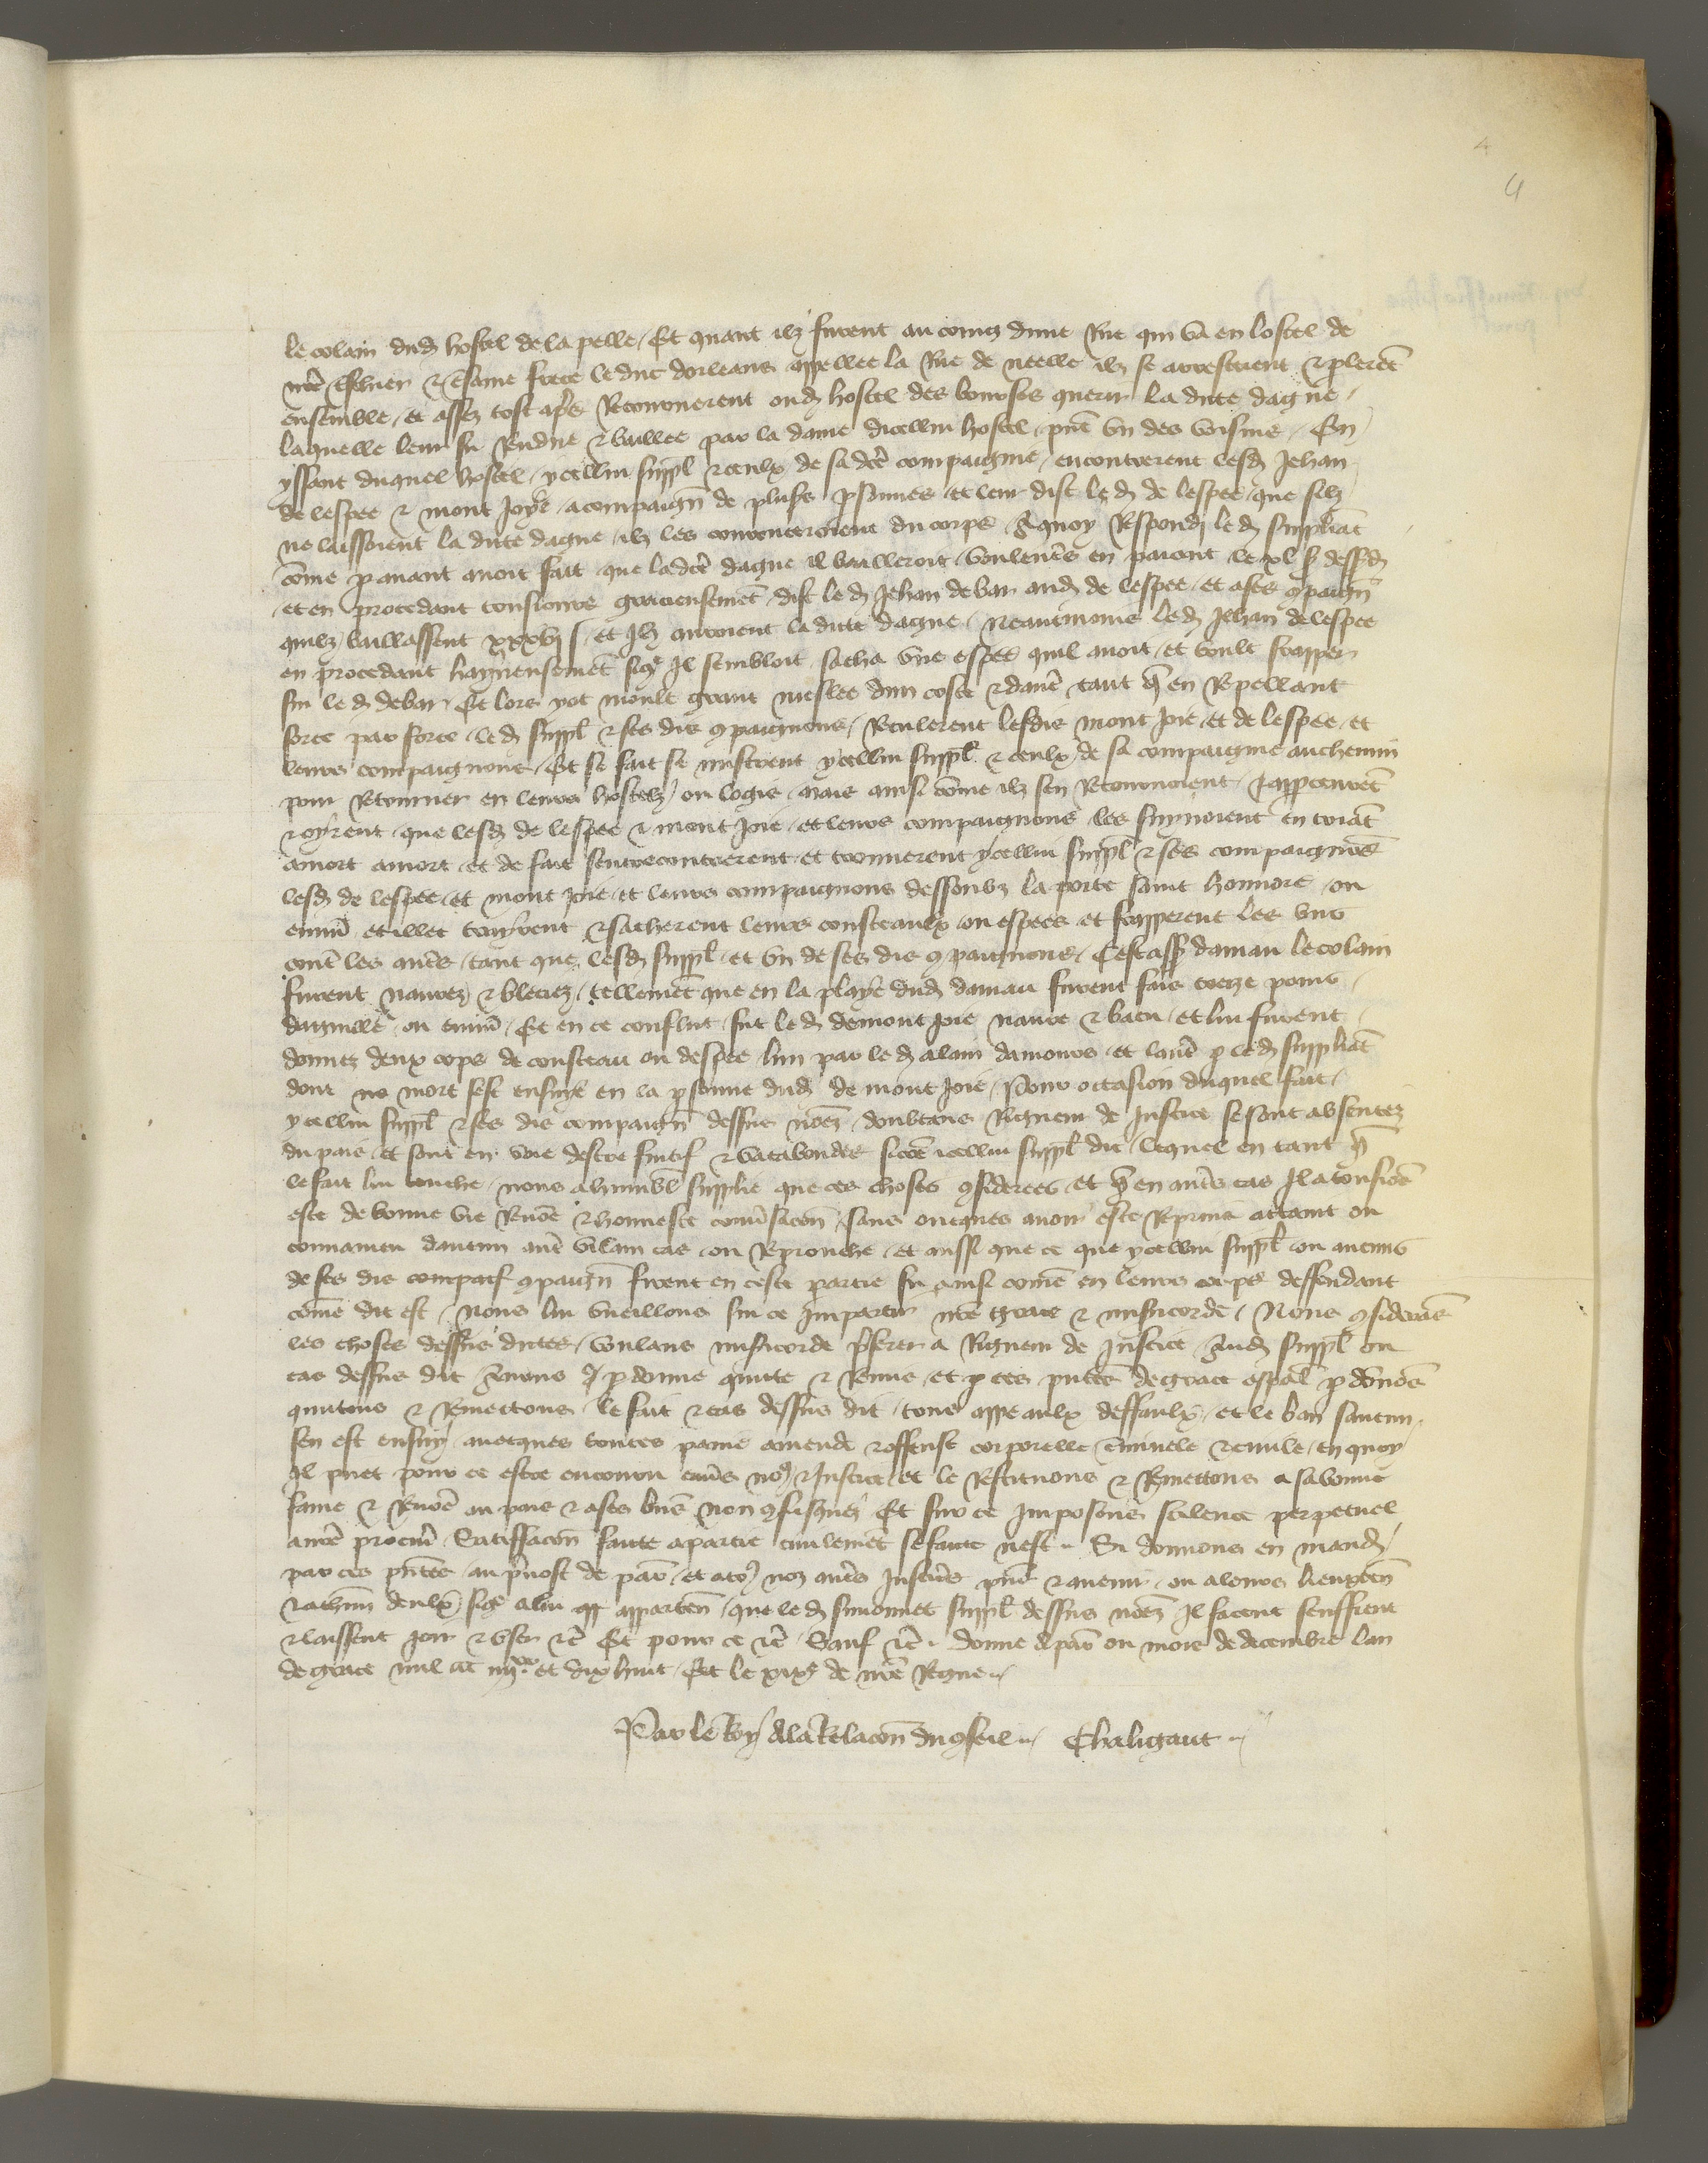 4
4
le colain dud hostel de la pelle / Et quant ilz furent au coing dune Rue qui va en lostel de
nre treschier & tresame frere le duc dorleans appellee la Rue de neelle ilz se arresterent & plerēt
ensemble / et assez tost apres Retournerent oud hostel des bourses querir la dicte dague /
laquelle leur fu Rendue & baillee par la dame dicellui hostel / pnt un des voisins / En
yssant duquel hostel / ycellui suppl & ceulx de sa dce compaignie / encontrerent lesd Jehan
de lespee & mont Joye / acompaign de plus psonnes / et leur dist led de lespee / que silz
ne laissoient la dicte dague / ilz les courouceroient du corps / A quoy Respondi led suppliāt
cōme p auant auoit fait / que lad dague il bailleroit / voulentrs en paiant le xl s dessusd
et en procedant tousiours gracieusemēt / dist led Jehan debar aud de lespee / et a ses 9paign
quilz baillassent xxxvj s / et Ilz auroient la dicte dague / Neantmoins led Jehan de lespee
en procedant hayneusemēt si 9e Il sembloit / sacha une espee quil auoit / et voult frapper
sur led debar / Et lors yot moult grant meslee dun coste & dautre tant q en Repellant
force par force / led suppl & ses dis 9paignons / Reculerent lesdis mont Joie / et de lespee / et
leurs compaignons / Et se fait se mistrent ycellui suppl & ceulx de sa compaignie au chemin
pour Retourner en leurs hostelz / ou logis / mais ainsi cōme ilz sen Retournoient / Japperceurēt
& oyrent / que lesd de lespee & mont Joie / et leurs compaignons les suiuoient en criāt
amort amort / et de fait sentrecontrerent / et trouuerent ycellui suppl & ses compaignōs
lesd de lespee / et mont Joie / et leurs compaignons dessoubz la porte saint honnore / ou
enuirō et illec trayrent & sacherent leurs cousteaulx / ou espees / et frapperent les uns
contre les autrs / tant que lesd suppl / et un de ses dis 9paignons / Cestass damau le colain
furent naurez & bleciez / tellemēt que en la playe dud damau furent fais treze poins
daguille / ou enuirō / Et en ce conflict / fut led de mont Joie naure & batu / et lui furent
donnez deux cops de cousteau ou despee / lun par led alain damours / et lautre p led suppliāt
dont mort sest ensuye en la psonne dud de mont Joie / Pour occasion duquel fait /
ycellui suppl & ses dis compaign dessus nōez / doubtans Rigueur de Justice se sont absentez
du pais / et sont en voie destre fuitif & vacabondes / si cōe icellui suppl dit / lequel en tant q
le fait lui touche / nous a humbl supplie que ces choses 9siderees / et q en autres cas Il a tousiōs
este de bonne vie Renōe & honneste conuersacōn / sans oncques auoir este Reprins attaint ou
conuaincu daucun autre villain cas / ou Reprouche / et aussi que ce que ycellui suppl ou aucuns
de ses dis compaīs 9paign firent en ceste partie fu ainsi comē en leurs corps deffendant
cōme dit est / nous lui vueillons sur ce Impartir nre grace & misericorde / Nous 9siderās
les choses dessus dictes / voulans misericorde preferer a Rigueur de Justice / Aud suppl ou
cas dessus dit Auons pdonne quitte & Remis / et p ces pntes de grace espal pdōnōs
quittons & Remettons le fait & cas dessus dit / tous appeaulx deffaulx / et le ban saucun
sen est ensuy / auecques toutes paine amende & offense corporelle criminele & ciuile / en quoy
Il puet pour ce estre encouru enuers noz & Justice / et le Restituons & Remettons a sa bonne
fame & Renōe au pais & a ses biēs non 9fisquez / Et sur ce Imposons scilence perpetuel
a nre procurr / Satisfacōn faicte a partie ciuilemēt se faicte nest / Si donnons en mand /
par ces pntes / au preuost de par / et a toz noz autrs Justicrs pns & auenir / ou a leurs lieuxten
& a chūn deulx / si 9e a lui appartenr / que led simonnet suppl dessus nōez Il facent seuffrent
& laissent Joir & user &c Et pour ce &c / Sauf &c / donne a par ou mois de decembre lan
de grace mil ccc iiijxx et dix huit / Et le xixe de nre Regne //
Par le Roy A la Relacōn du 9seil // Chaligaut //